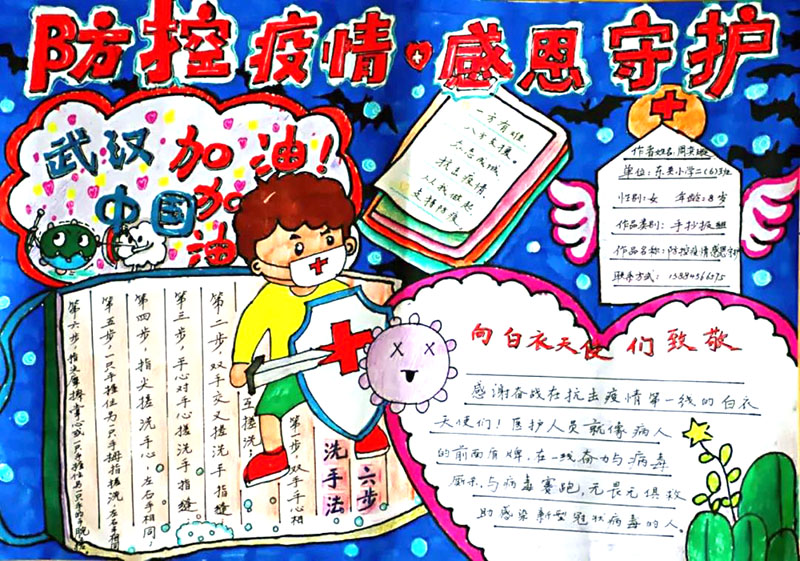 防控疫情·感恩守护
武汉加油!
中国加油
一方有难
八方支援。
众志成城
抗击疫情
从我做起
支持防疫
作者姓名:
单位: 小学二
性别:女 年龄:8岁
作品类别:手抄报
作品名称:防控疫情感恩守护
联系方式:
向白衣天使们致敬
感谢奋战在抗击疫情第一线的白衣
天使们!医护人员就像病人
的前面盾牌,在一线奋力与病毒
厮杀,与病毒赛跑,无畏无惧救
助感染新型冠状病毒的人。
六步
洗手法
第一步,双手手心相
互搓洗;
第二步,双手交叉搓洗手指缝
第三步,手心对手心搓洗手指缝
第四步,指尖搓洗手心,左右手相同;
第五步,一只手握住另一只手拇指搓洗,左右手相同
第六步,指尖摩擦掌心或一只手握住另一只手的手腕